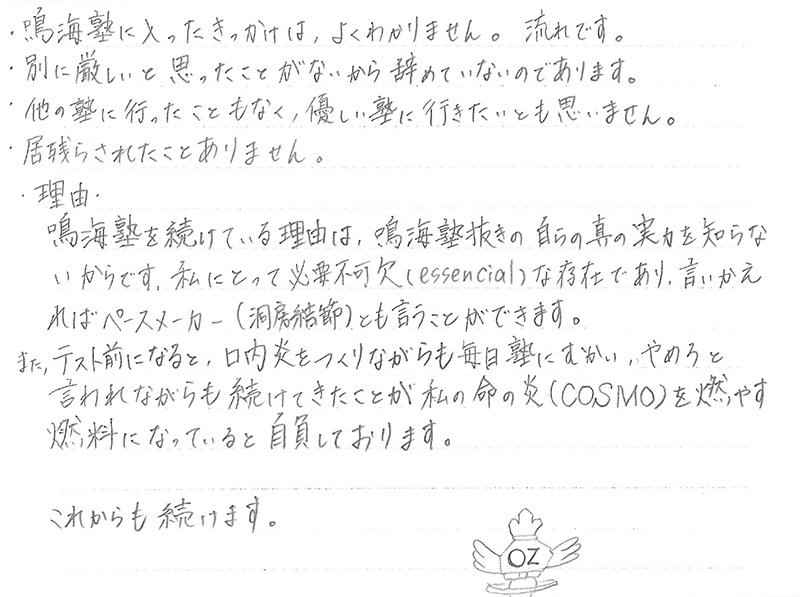 ・鳴海塾に入ったきっかけは，よくわかりません。 流れです。
・別に厳しいと思ったことがないから辞めていないのであります。
・他の塾に行ったこともなく，優しい塾に行きたいとも思いません。
・居残らされたことありません。
・理由・
鳴海塾を続けている理由は，鳴海塾抜きの自らの真の実力を知らな
いからです．私にとって必要不可欠(essencial)な存在であり，言いかえ
ればペースメーカー(洞房結節)とも言うことができます。
また，テスト前になると，口内炎をつくりながらも毎日塾にむかい，やめろと
言われながらも続けてきたことが私の命の炎(COSMO)を燃やす
燃料になっていると自負しております。
これからも続けます。
OZ